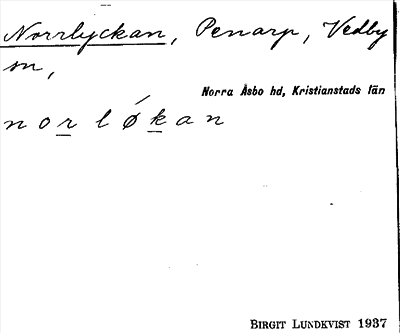 Norrlyckan, Penarp, Vedby
sn,
Norra Åsbo hd, Kristianstads län
norlǿkan
BIRGIT LUNDKVIST 1937